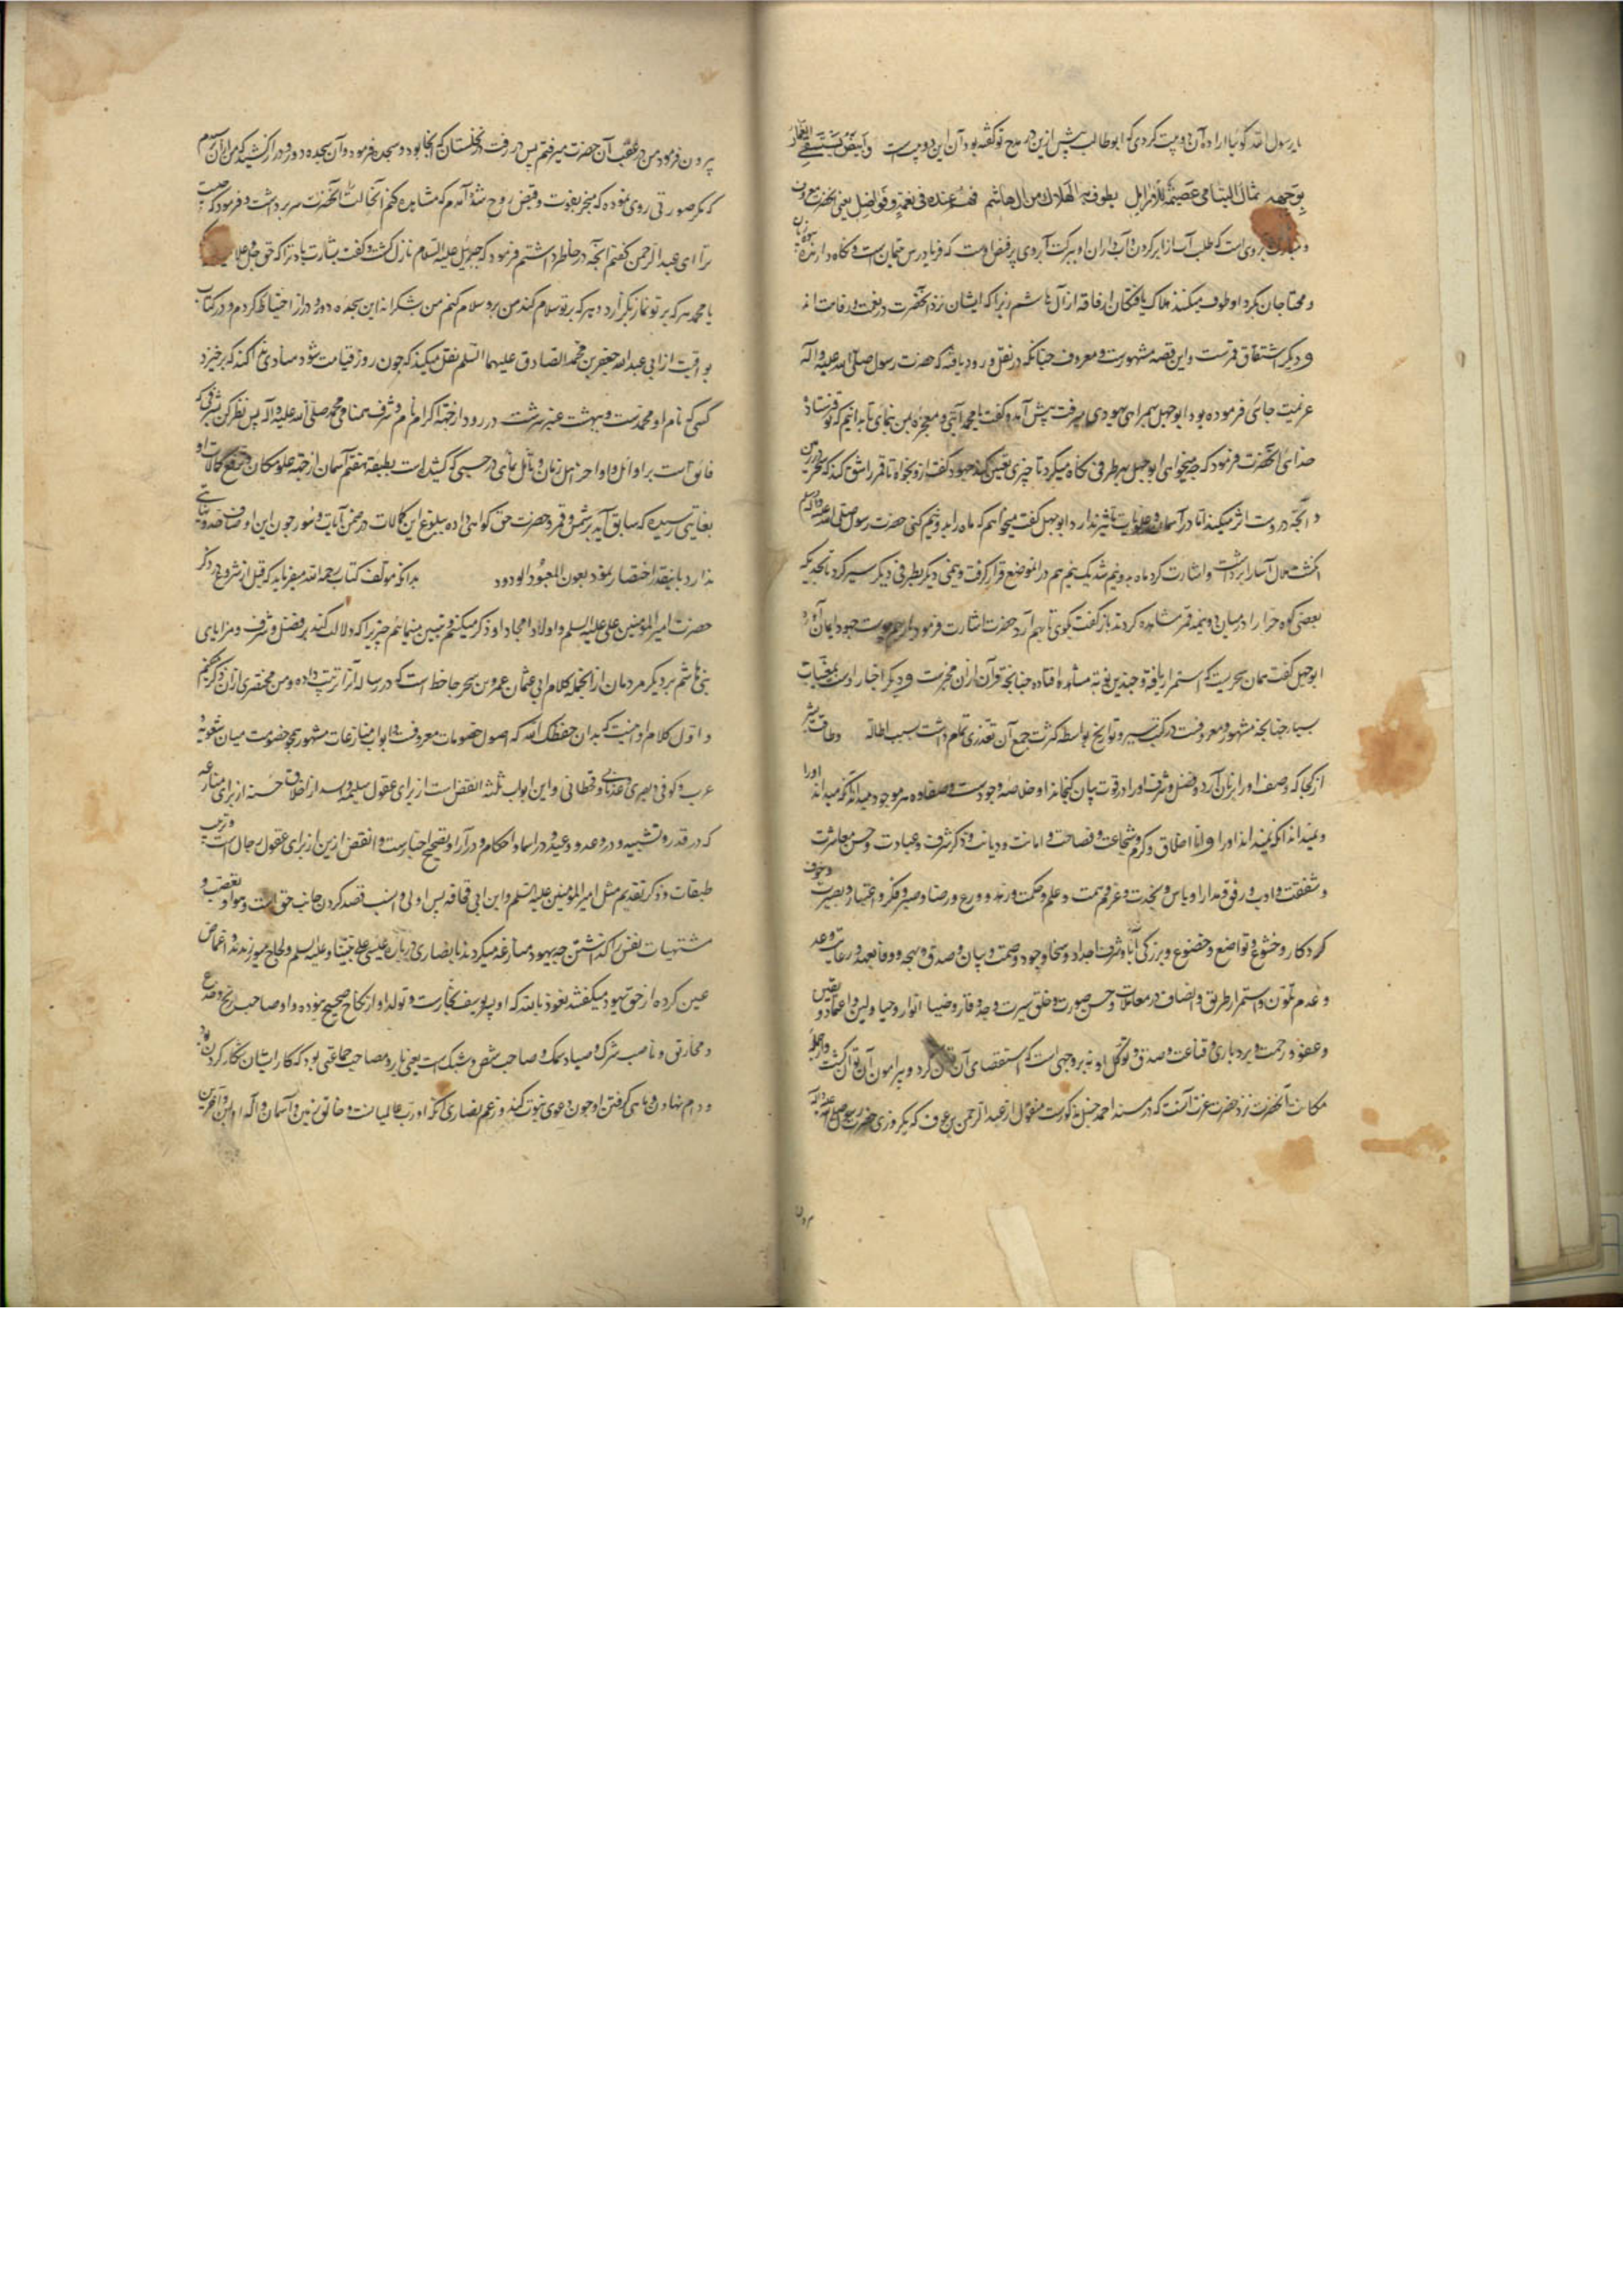 یا رسول الله گویا اراده آن دو بیت کردی که ابوطالب پیش ازین در مدح تو گفته بود آن این دو بیت است وابیض یستسقی الغمام
بوجهه ثمال الیتامی عصمة للارامل یطوف به الهلاك من ال هاشم فهم عنده فی نعمة وفواضل یعنی آنحضرت
رویی است که طلب آب از ابر کردن و آب باران او ببرکت آبروی پر فیض اوست که فریادرس یتیمان است و نگاه دارنده
و محتاجان بگرد او طوف میکنند هلاک یافتگان از فاقه از آل هاشم زیرا که ایشان نزد آنحضرت در نعمت و رفاهت اند
و دیگر اشتقاق قمرست و این قصه مشهورست و معروف چنانکه در نقل ورود یافته که حضرت رسول صلی الله علیه و آله
عزیمت جائی فرموده بود ابوجهل بهمراهی یهودی میرفت پیش آمد و گفت یا محمد آیتی و معجزه بمن نمای تا بدانیم که تو فرستاده
خدائی آنحضرت فرمود که چه میخواهی ابوجهل بهر طرفی نگاه میکرد تا چیزی تعیین کند جهود گفت ازو بخواه تا قمر را شق کند که سحر در زمین
و آنچه دروست اثر میکند اما در آسمان و علویات تاثیر ندارد ابوجهل گفت میخواهم که ماه را بدو نیم کنی حضرت رسول صلی الله علیه و آله
انگشت مبارک برداشت و اشارت کرد ماه بدو نیم شد یک نیم هم در آن موضع قرار گرفت و نیمی دیگر بطرفی دیگر سیر کرد تا بحدیکه
بعضی کوه حرا را در میان دو نیمه قمر مشاهده کردند باز گفت بگوی تا بهم آرد حضرت اشارت فرمود باز بهم پیوست جهود ایمان آورد
ابوجهل گفت همان سحریست که استمرار یافته و چندین نوبه مشاهده افتاده چنانچه قرآن از آن مخبرست و دیگر اخبار اوست بمغیبات
بسیار چنانچه مشهور و معروفست در کتب سیر و تواریخ بواسطه کثرت جمع آن تعذری تمام داشت بسبب اطاله و طاقت بشر
از کجا که وصف او را بر زبان آرد و فضل و شرف او را در قوت بیان گنجاند او خلاصه وجودست و صفاوه هر موجود میداند آنکه میداند او را
و نمیداند آنکه نمیداند او را و اما اخلاق و کرم و شجاعت و فصاحت و امانت و دیانت و ذکر شرف و عبادت و حسن معاشرت
و شفقت و ادب و رفق و مدارا و باس و نجدت و عزم و همت و علم و حکمت و زهد و ورع و رضا و صبر و فکر و اعتبار و بصیرت و خوف
کردگار و خشوع و تواضع و خضوع و بزرگی آباء و شرف اجداد و سخا و جود و صمت و بیان و صدق لهجه و وفا بعهد و رعایت وعد
و عدم تلون و استمرار طریق و انصاف در معاملات و حسن صورت و خلق سیرت و جد و وقار و ضیا انوار و حیا و لین و اعتماد و یقین
و عفو و رحمت و بردباری و قناعت و صدق و توکل او نه بر وجهی است که استقصای آن توان کرد و پیرامون آن توان گشت و از جمله
مکانات آنحضرت نزد حضرت عزت آنست که در مسند احمد حنبل مذکورست منقول از عبد الرحمن بن عوف که یکروزی حضرت رسول صلی الله علیه و آله
بیرون فرمود من در عقب آن حضرت میرفتم پس در رفت در نخلستان که آنجا بود و سجده فرمود و آن سجده دور و دراز کشید که من از آن ترسیدم
که مگر صورتی روی نموده که منجر بفوت و قبض روح شد آمدم که مشاهده کنم آنحالت را آنحضرت سر برداشت و فرمود که چیست
ترا ای عبد الرحمن گفتم آنچه در خاطر داشتم فرمود که جبرئیل علیه السلام نازل گشت و گفت بشارت باد ترا که حق جل و علا
یا محمد هر که بر تو نماز بگزارد و هر که بر تو سلام کند من برو سلام کنم من شکرانه این سجده دور و دراز احتیاط کردم و در کتاب
یواقیت از ابی عبد الله جعفر بن محمد الصادق علیهما السلم نقل میکند که چون روز قیامت شود منادی ندا کند که برخیزد
کسی که نام او محمدست و ببهشت عنبر سرشت در رود از جهة اکرام نام و شرف همنامی محمد صلی الله علیه و آله پس نظر کن بشرفی که
فائق است بر اوائل و اواخر اهل زمان و تأمل نمای در حسبی که کشیده است بطبقه هفتم آسمان از جهة علو مکان و مجموع کمالات او
بغایتی رسیده که سابق آید بر شمس و قمر و حضرت حق گواهی داده ببلوغ این کمالات در ضمن آیات و سور چون این اوصاف حد و نهایتی
ندارد باینقدر اختصار نمود بعون المعبود الودود بدانکه مولف کتاب رحمه الله میفرماید که قبل از شروع در ذکر
حضرت امیر المؤمنین علی علیه السلم و اولاد امجاد او ذکر میکنم و تبیین مینمائیم چیزیرا که دلالت کند بر فضل و شرف و مزایای
بنی هاشم بر دیگر مردمان از آنجمله کلام ابی عثمان عمرو بن بحر جاحظ است که در رساله آنرا ترتیب داده و من مختصری از آن ذکر میکنم
و اول کلام او اینست که بدان حفظک الله که اصول خصومات معروفست و ابواب منازعات مشهور همچو خصومت میان شعوبیه
عرب و کوفی و بصری و عدنانی و قحطانی و این ابواب ثلثه انقض است از برای عقول سلیمه و افسد از اخلاق حسنه از برای منازعه
که در قدر و تشبیه و در وعد و وعید و در اسما و احکام و در آرا و تصحیح اخبارست و انقض ازین از برای عقول رجال است و ترتیب
طبقات و ذکر تقدیم مثل امیر المؤمنین علیه السلم و ابن ابی قحافه پس اولی و انسب قصد کردن جانب حق است و هوا و تعصب و
مشتهیات نفس را گذاشتن چه یهود منازعه میکردند با نصاری در باره عیسی علی نبینا و علیه السلم و لجاج میورزیدند و اغماض
عین کرده از حق یهود میگفتند نعوذ بالله که او پسر یوسف نجارست و تولد او از نکاح صحیح نبوده و او صاحب رنج و صدع
و مخارق و ناصب شرک و صیاد سمک و صاحب شص و شبک است یعنی یار و مصاحب جماعتی بود که کار ایشان شکار کردن بود
و دام نهادن و ماهی گرفتن او چون دعوی نبوت کند و زعم نصاری آنکه او رب عالمیانست و خالق زمین و آسمان و اله اولین و آخرین